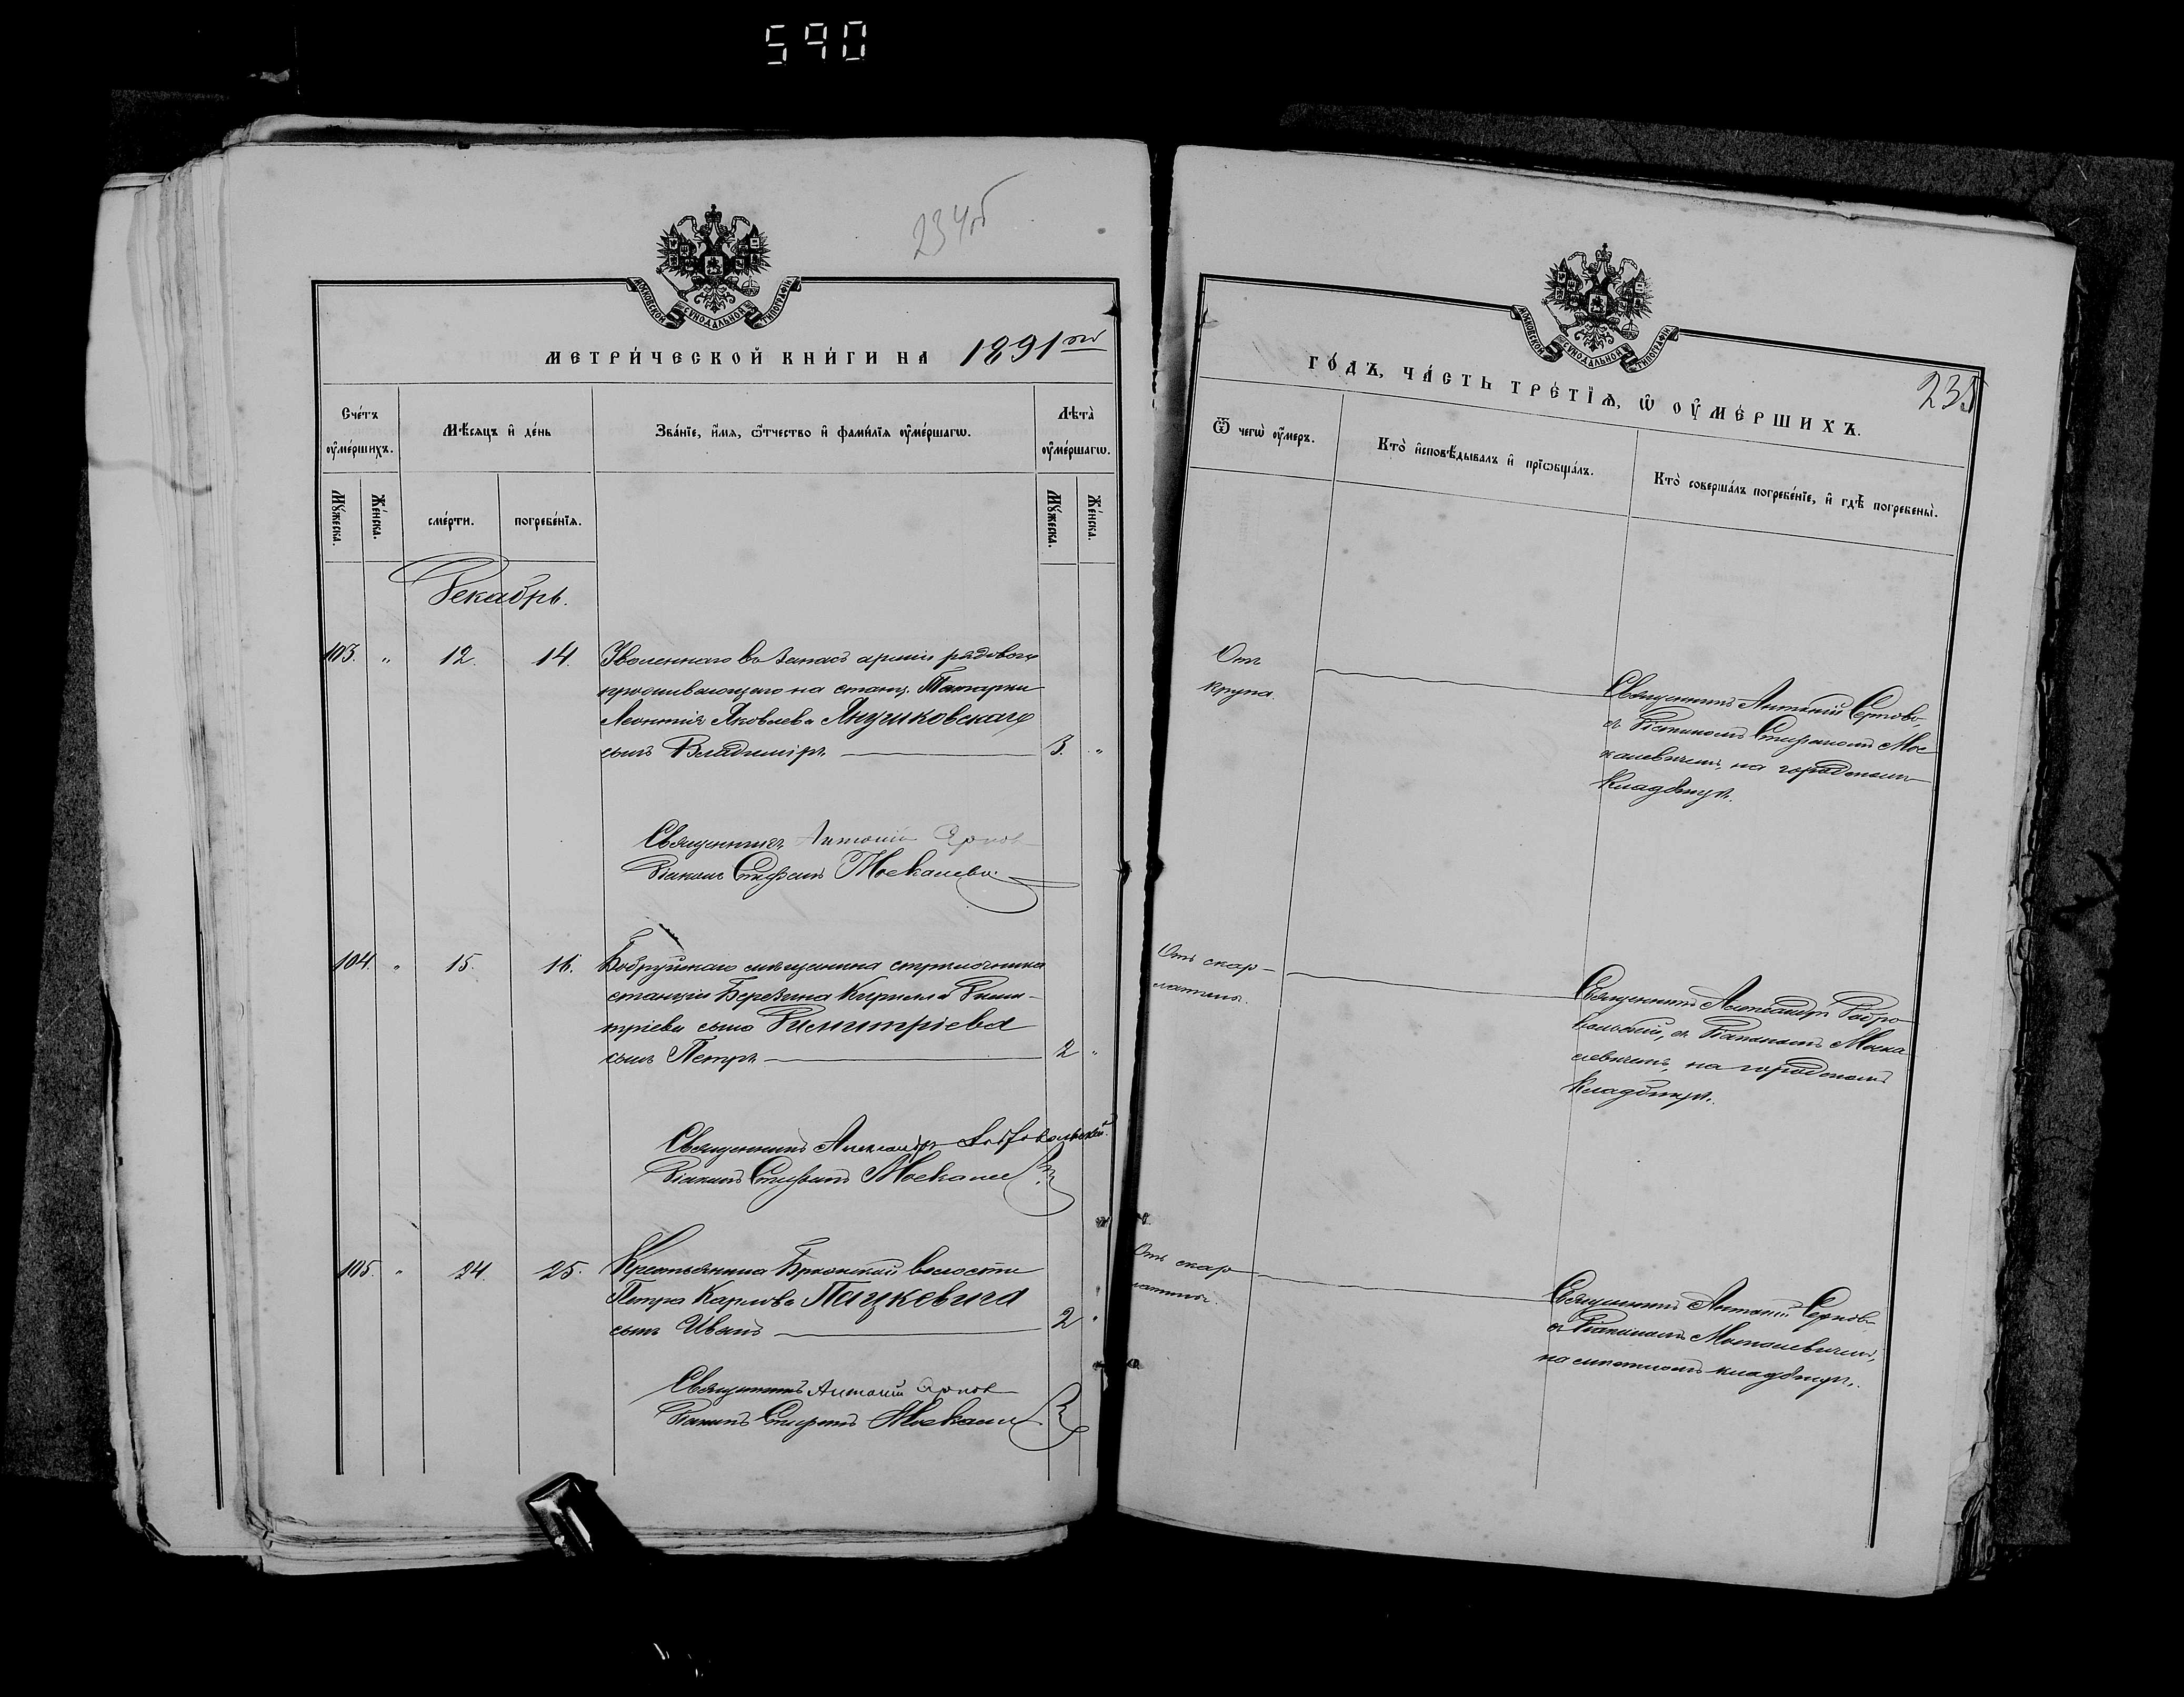 590
234об
МОСКОВСКОЙ СѴНОДАЛЬНОЙ ТИПОГРАФІИ
МЕТРИ́ЧЕСКОЙ КНИ́ГИ НА 1891й
Сче́тъ оу҆ме́ршихъ.
Мѣ́сяцъ и҆ де́нь
Зва́нїе, и҆́мя, ѻ҆́тчество и҆ фами́лїя оу҆ме́ршагѡ.
Лѣ́та оу҆ме́ршагѡ.
Мꙋ́жеска.
Же́нска.
сме́рти.
погребе́нїя.
Мꙋ́жеска.
Же́нска.
Декабрь.
103. „ 12. 14. Уволеннаго въ запасъ арміи рядового
проживающаго на станц. Татарки
Леонтія Яковлева Янушковскаго
сынъ Владиміръ — 3. „
Священникъ Антоній
Діаконъ Стефанъ Москалевъ
104. „ 15. 16. Бобруйскаго мѣщанина стрѣлочника
станціи Березина Кирилла Дими-
тріева сына Димитріева
сынъ Петръ — 2 „
Священникъ Александръ Добровольскій
Діаконъ Стефанъ
105. „ 24. 25. Крестьянина волости
Петра Карлова Пацкевича
сынъ Иванъ — 2 „
Священникъ Антоній
Діаконъ Стефанъ
МОСКОВСКОЙ СѴНОДАЛЬНОЙ ТИПОГРАФІИ
ГО́ДЪ, ЧА́СТЬ ТРЕ́ТЇЯ, Ѡ҆ ОУ҆МЕ́РШИХЪ.
235
Ѿ чегѡ̀ оу҆́меръ.
Кто̀ и҆сповѣ́дывалъ и҆ прїѡбща́лъ.
Кто̀ соверша́лъ погребе́нїе, и҆ гдѣ̀ погребены̀.
Отъ
крупа.
Священникъ Антоній
съ Діакономъ Стефаномъ Мос
калевичемъ, на городскомъ
кладбищѣ.
Отъ скар-
латины.
Священникъ Александръ Добро
вольскій, съ Діакономъ Моска
левичемъ, на городскомъ
кладбищѣ.
Отъ скар
латины.
Священникъ Антоній
съ Діакономъ Москалевичемъ,
на кладбищѣ.